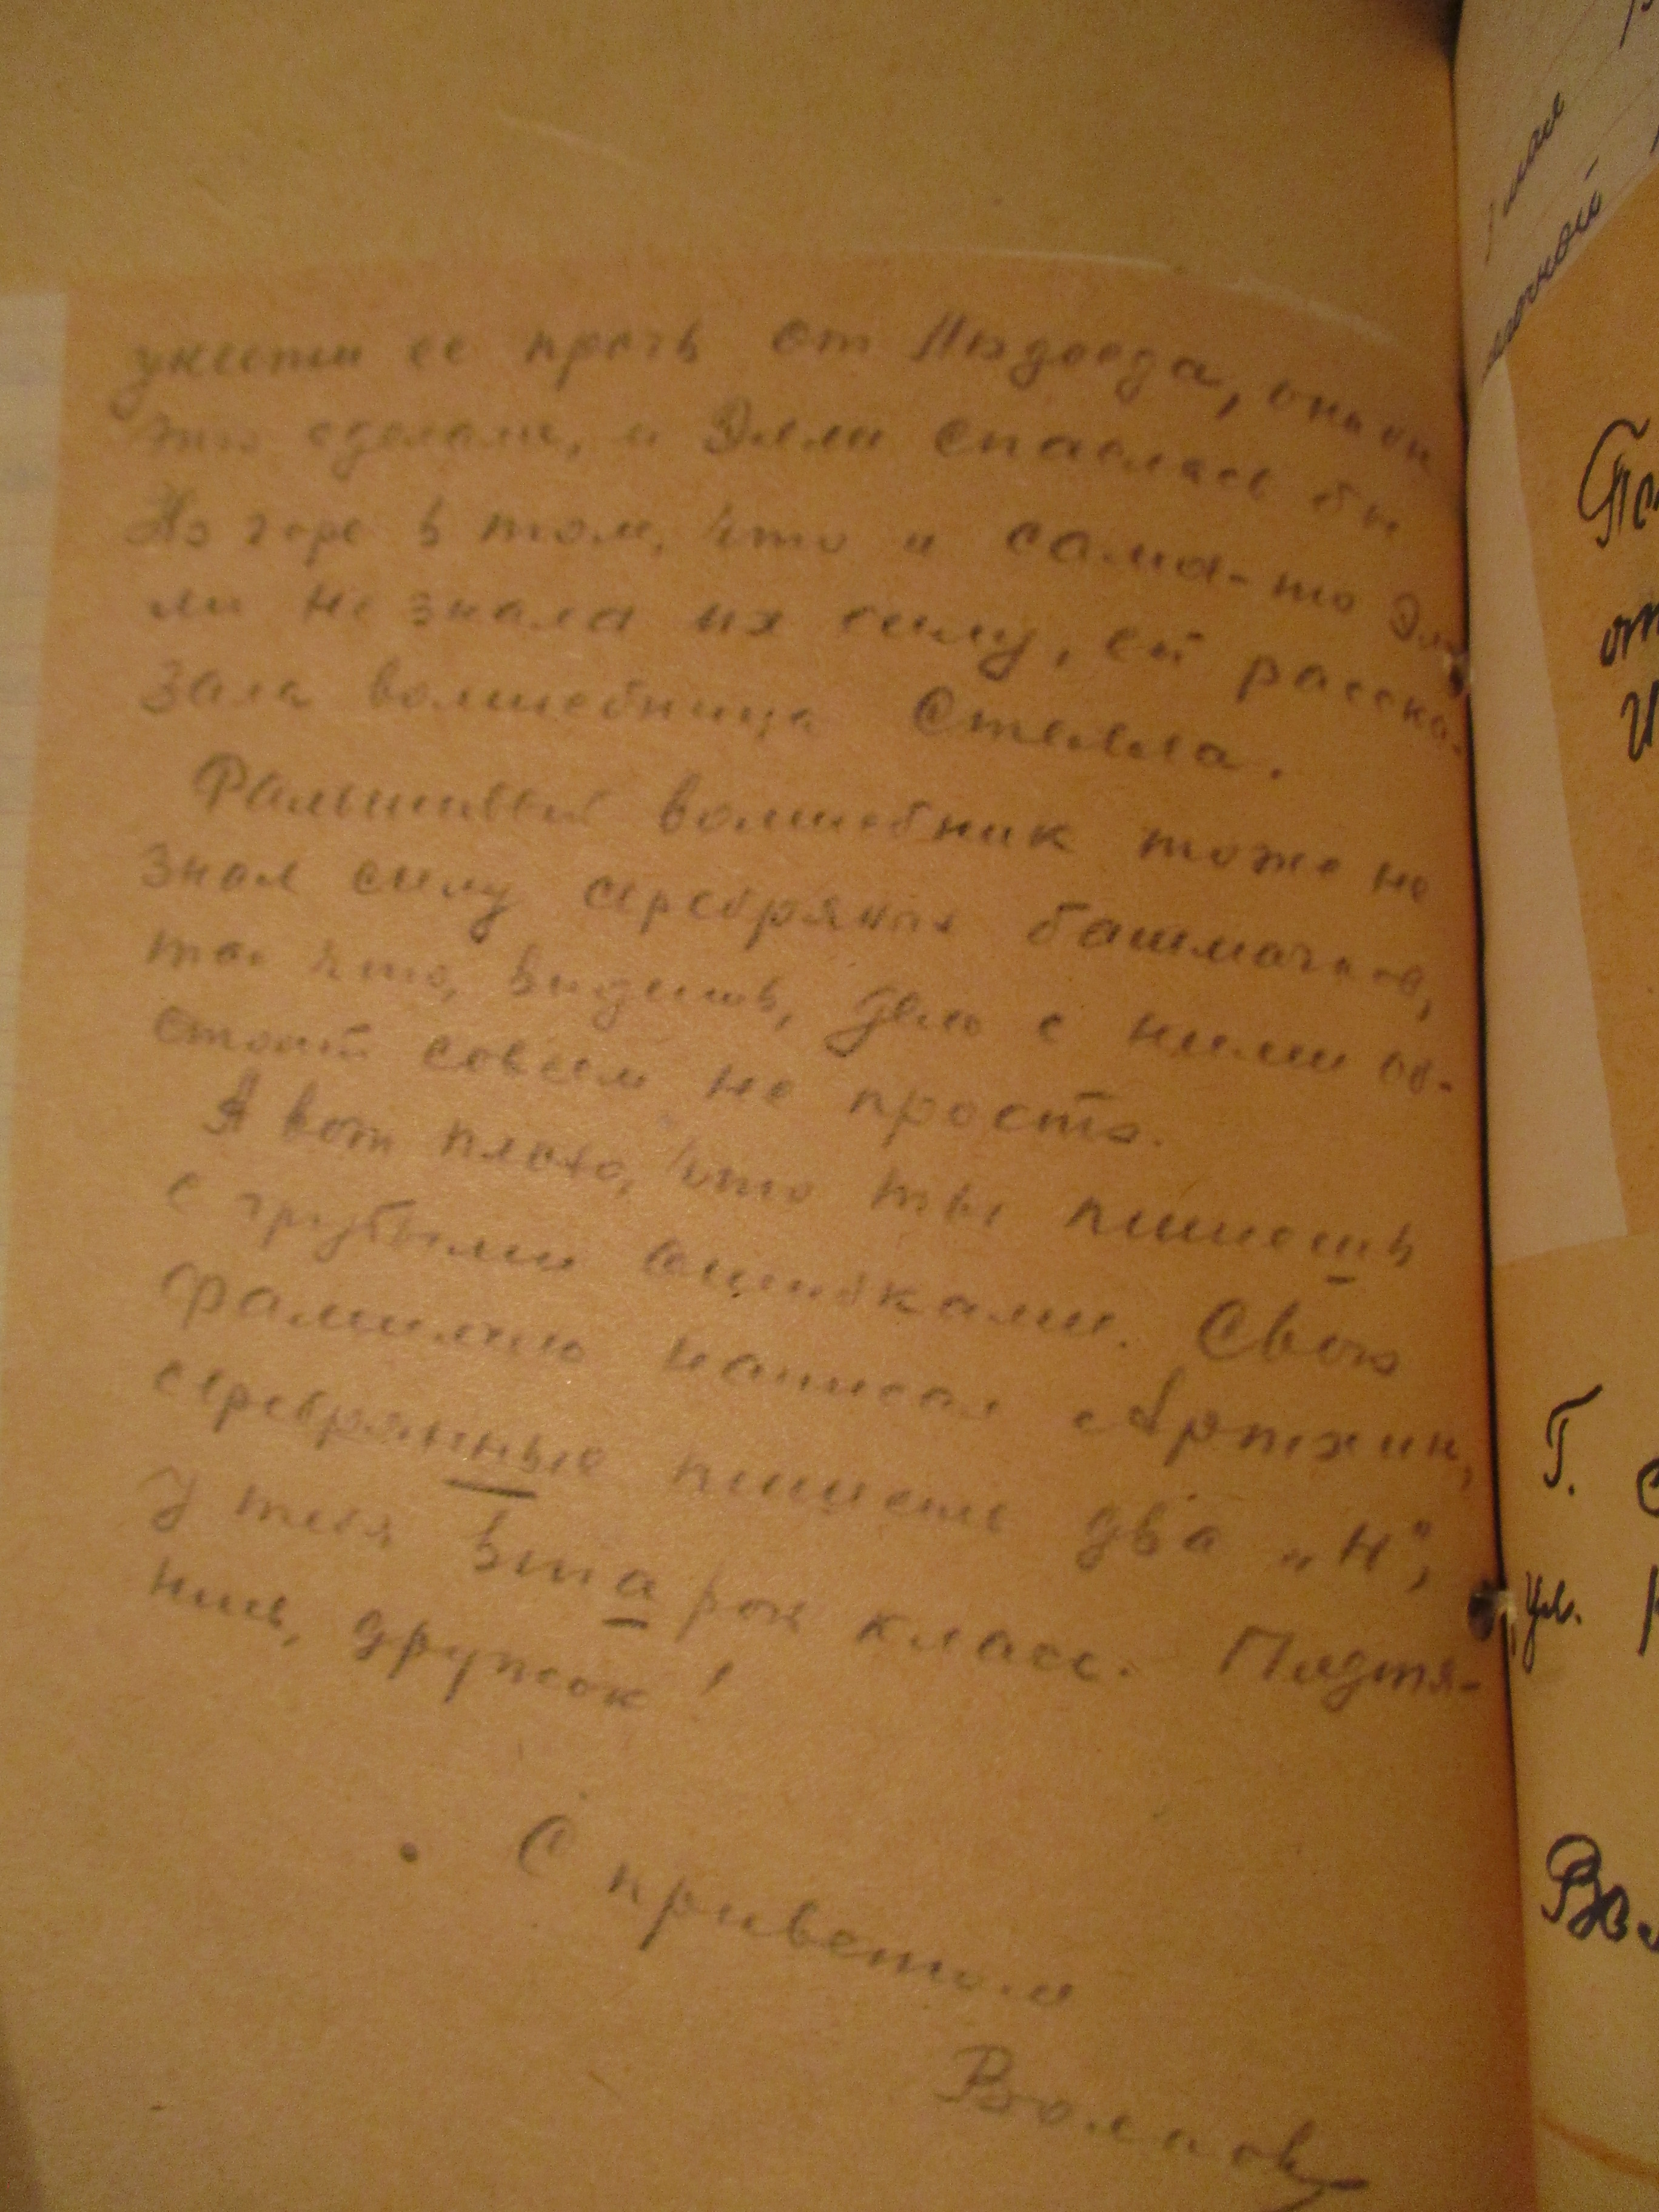 унести ее прочь от Людоеда, они бы
это сделали, и Элли спаслась бы
Но горе в том, что и сама-то Эл
ли не знала их силу, ей расска-
зала волшебница Стелла.
Фальшивый волшебник тоже не
знал силу серебряных башмачков,
так что, видишь, дело с ними об-
стоит совсем не просто.
А вот плохо, что ты пишешь
с грубыми ошибками. Свою
фамилию написал Артхин,
серебрянные пишешь два „Н“,
У тебя втарой класс. Подтя-
нись, дружок!
С приветом
Волков
1 мая
Г.
ул.